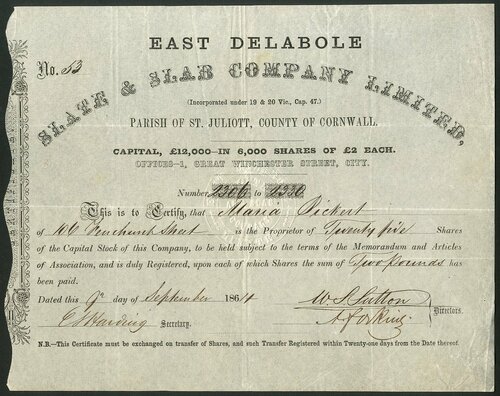 EAST DELABOLE
No. 53
SLATE & SLAB COMPANY LIMITED,
(Incorporated under 19 & 20 Vic., Cap. 47.)
PARISH OF ST. JULIOTT, COUNTY OF CORNWALL.
CAPITAL, £12,000—IN 6,000 SHARES OF £2 EACH.
OFFICES—1, GREAT WINCHESTER STREET, CITY.
Number 2306 to 2330
This is to Certify, that Maria Pickert
of 106 Fenchurch Street is the Proprietor of Twenty five Shares
of the Capital Stock of this Company, to be held subject to the terms of the Memorandum and Articles
of Association, and is duly Registered, upon each of which Shares the sum of Two Pounds has
been paid.
Dated this 9th day of September 1864
W Sutton
Directors.
E Harding Secretary.
N.B.—This Certificate must be exchanged on transfer of Shares, and such Transfer Registered within Twenty-one days from the Date thereof.